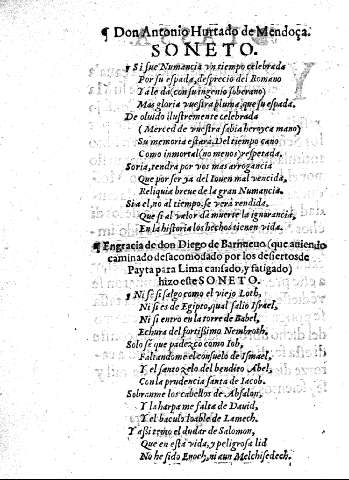 ¶ Don Antonio Hurtado de Mendoça.
SONETO.
¶ Si fue Numancia vn tiempo celebrada
Por su espada, desprecio del Romano
Ya le da (con su ingenio soberano)
Mas gloria vuestra pluma, que su espada.
De oluido ilustremente celebrada
(Merced de vuestra sabia heroyca mano)
Su memoria estará, Del tiempo cano
Como inmortal (no menos) respetada.
Soria, tendra por vos mas arrogancia
Que por ser ya del Iouen mal vencida,
Reliquia breue de la gran Numancia.
Sin el, no al tiempo, se verá rendida,
Que si al valor da muerte la ignorancia,
En la historia los hechos tienen vida.
¶ En gracia de don Diego de Barnueuo (que auiendo
caminado desacomodado por los desiertos de
Payta para Lima cansado, y fatigado)
hizo este SONETO.
¶ Ni sé si salgo como el viejo Loth,
Ni si es de Egipto, qual salio Israel,
Ni si entro en la torre de Babel,
Echura del fortissimo Nembroth.
Solo sé que padezco como Iob,
Faltandome el consuelo de Ismael,
Y el santo zelo del bendito Abel,
Con la prudencia santa de Iacob.
Sobranme los cabellos de Absalon,
Y la harpa me falta de Dauid,
Y el baculo loable de Lamech.
Y assi tengo el dudar de Salomon,
Que en esta vida, y peligrosa lid
No he sido Enoch, ni aun Melchisedech.